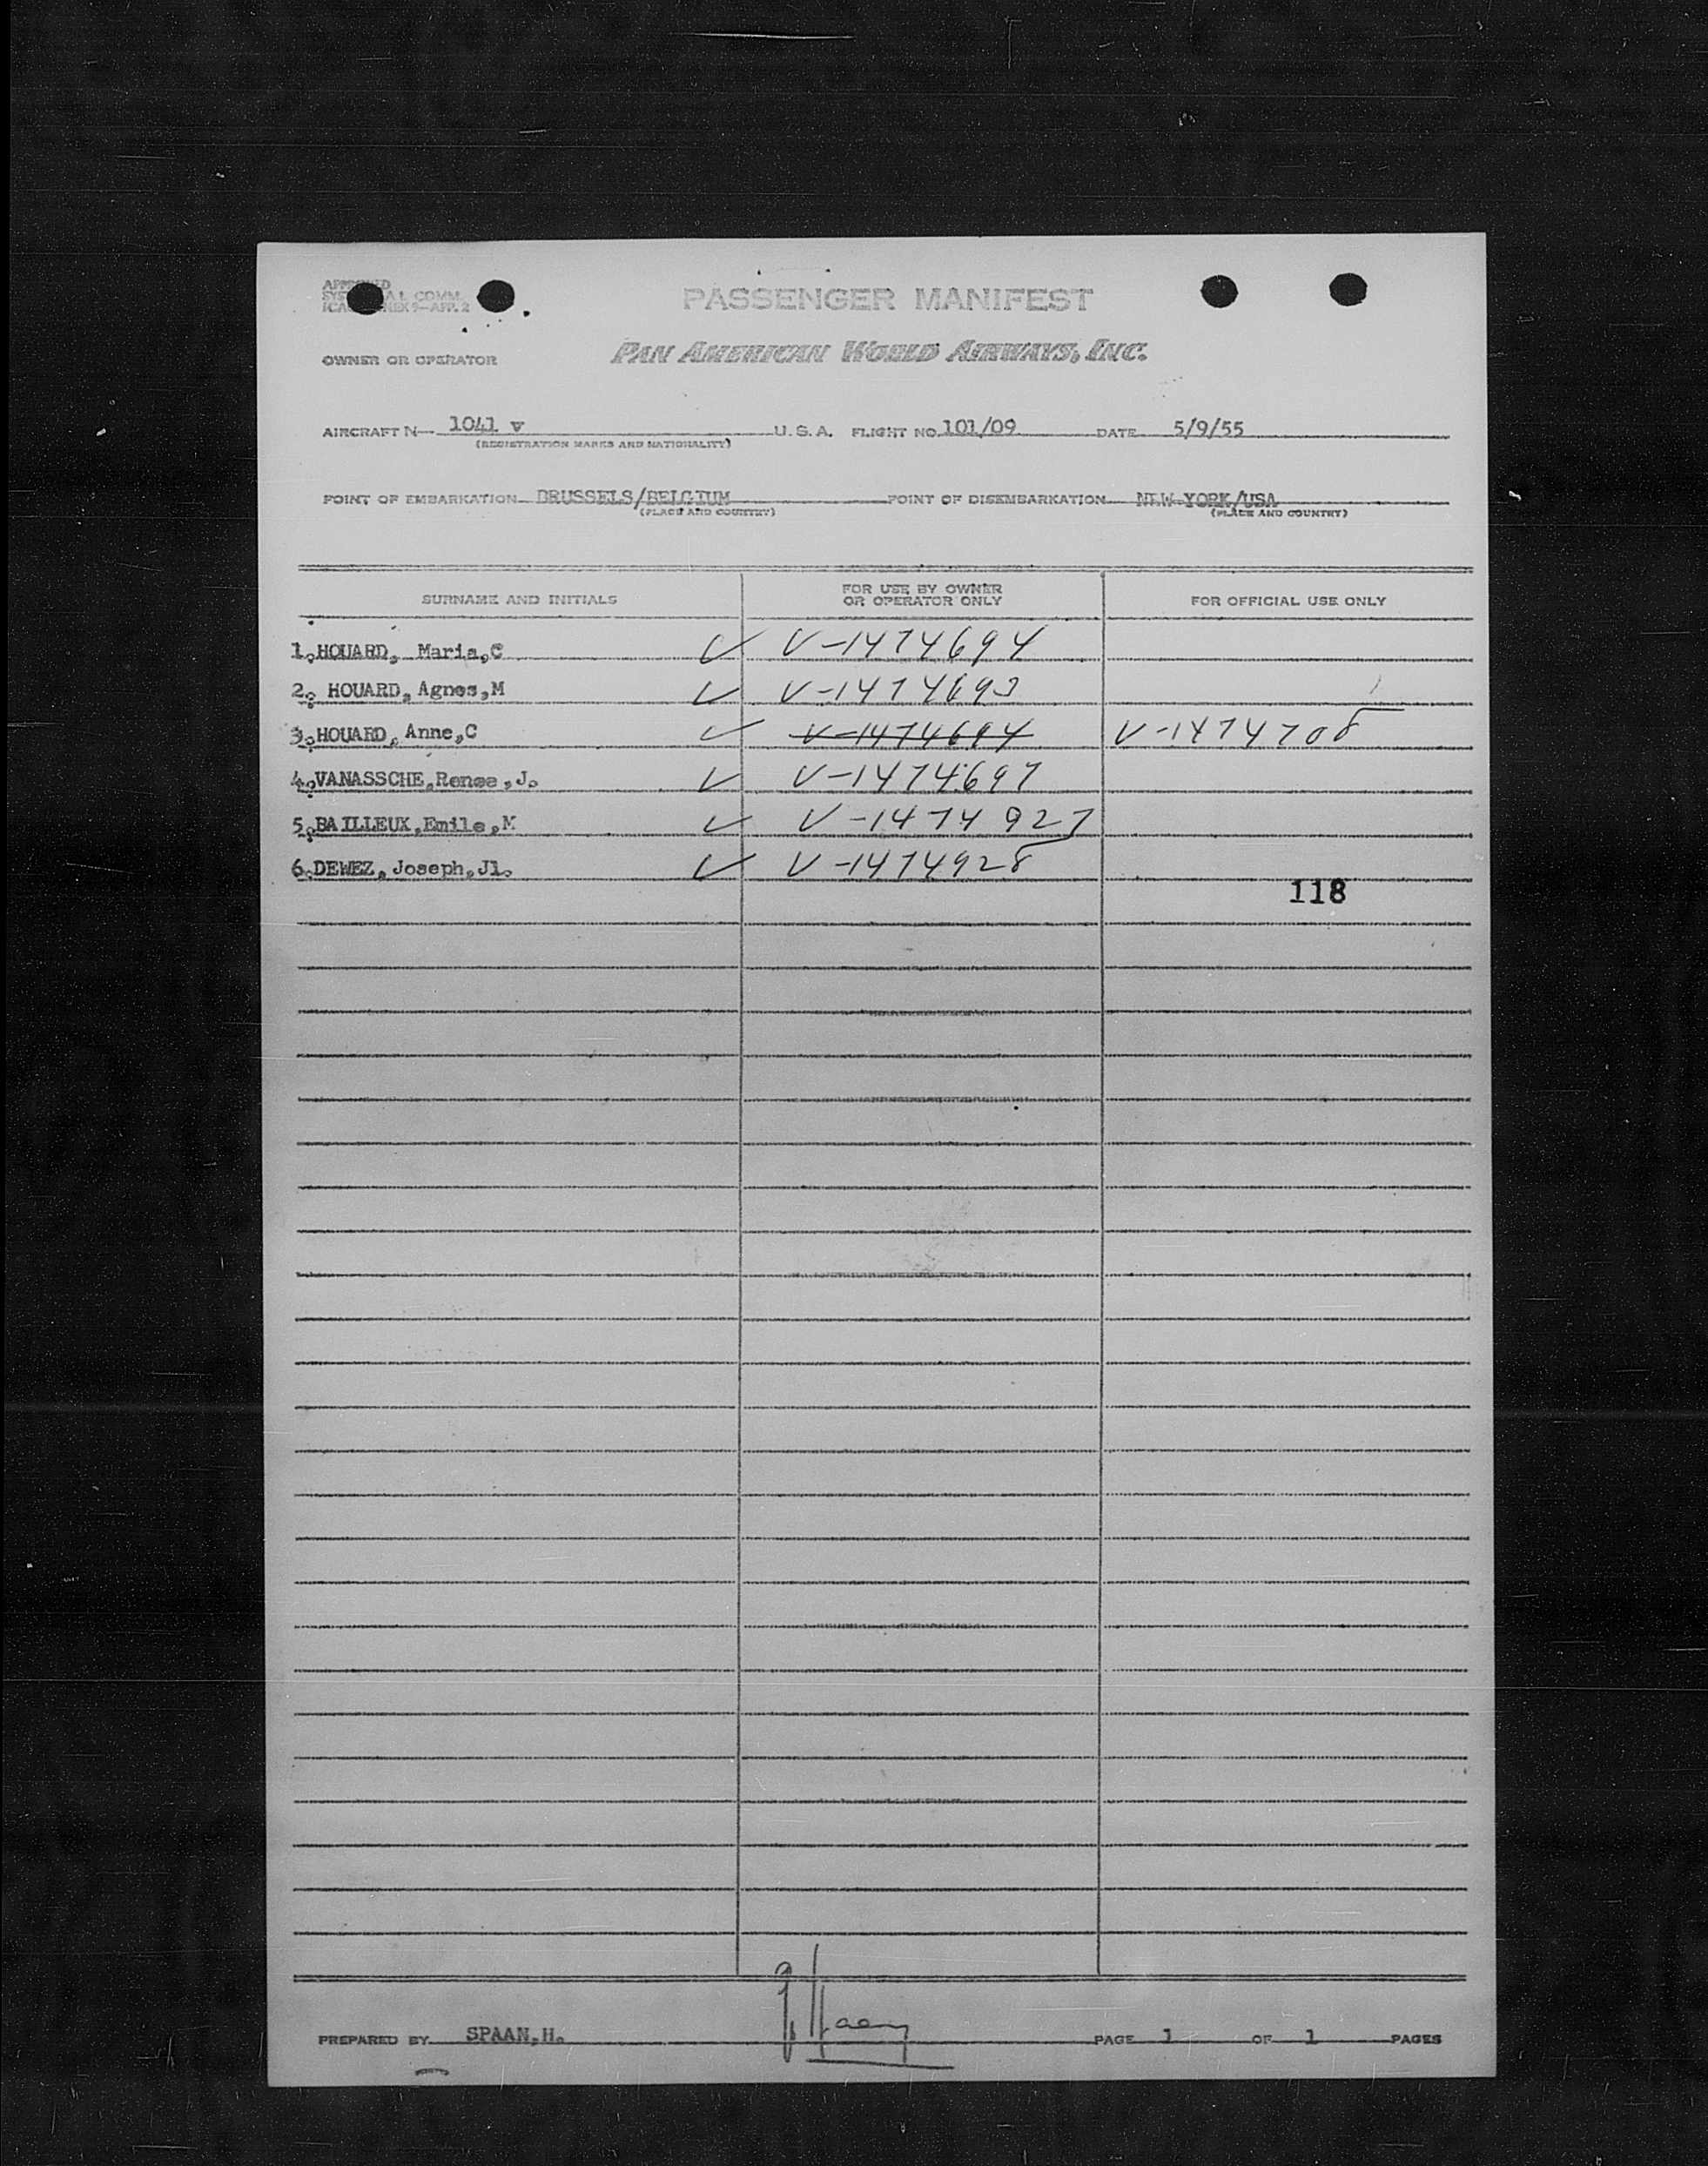 APPROVED
SYS
AL COMM.
ICAO ANNEX 9—APP. 2
PASSENGER MANIFEST
OWNER OR OPERATOR PAN AMERICAN WORLD AIRWAYS, INC.
AIRCRAFT N 1041 v U.S.A. FLIGHT NO. 101/09 DATE 5/9/55
(REGISTRATION MARKS AND NATIONALITY)
POINT OF EMBARKATION BRUSSELS/BELGIUM POINT OF DISEMBARKATION NEW YORK/USA
(PLACE AND COUNTRY) (PLACE AND COUNTRY)
SURNAME AND INITIALS FOR USE BY OWNER OR OPERATOR ONLY FOR OFFICIAL USE ONLY
1.HOUARD, Maria,C V-1474694
2. HOUARD, Agnes,M V-1474693
3.HOUARD, Anne,C V-1474694 V-1474708
4.VANASSCHE,Renee,J. V-1474697
5.BAILLEUX,Emile,M V-1474927
6.DEWEZ, Joseph,Jl. V-1474928
118
PREPARED BY SPAAN,H. PAGE 1 OF 1 PAGES